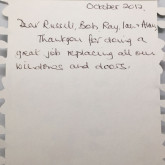 October 2012
Dear Russell, Bob, Ray, Ian + Alan,
Thankyou for doing a
great job replacing all our
windows and doors.